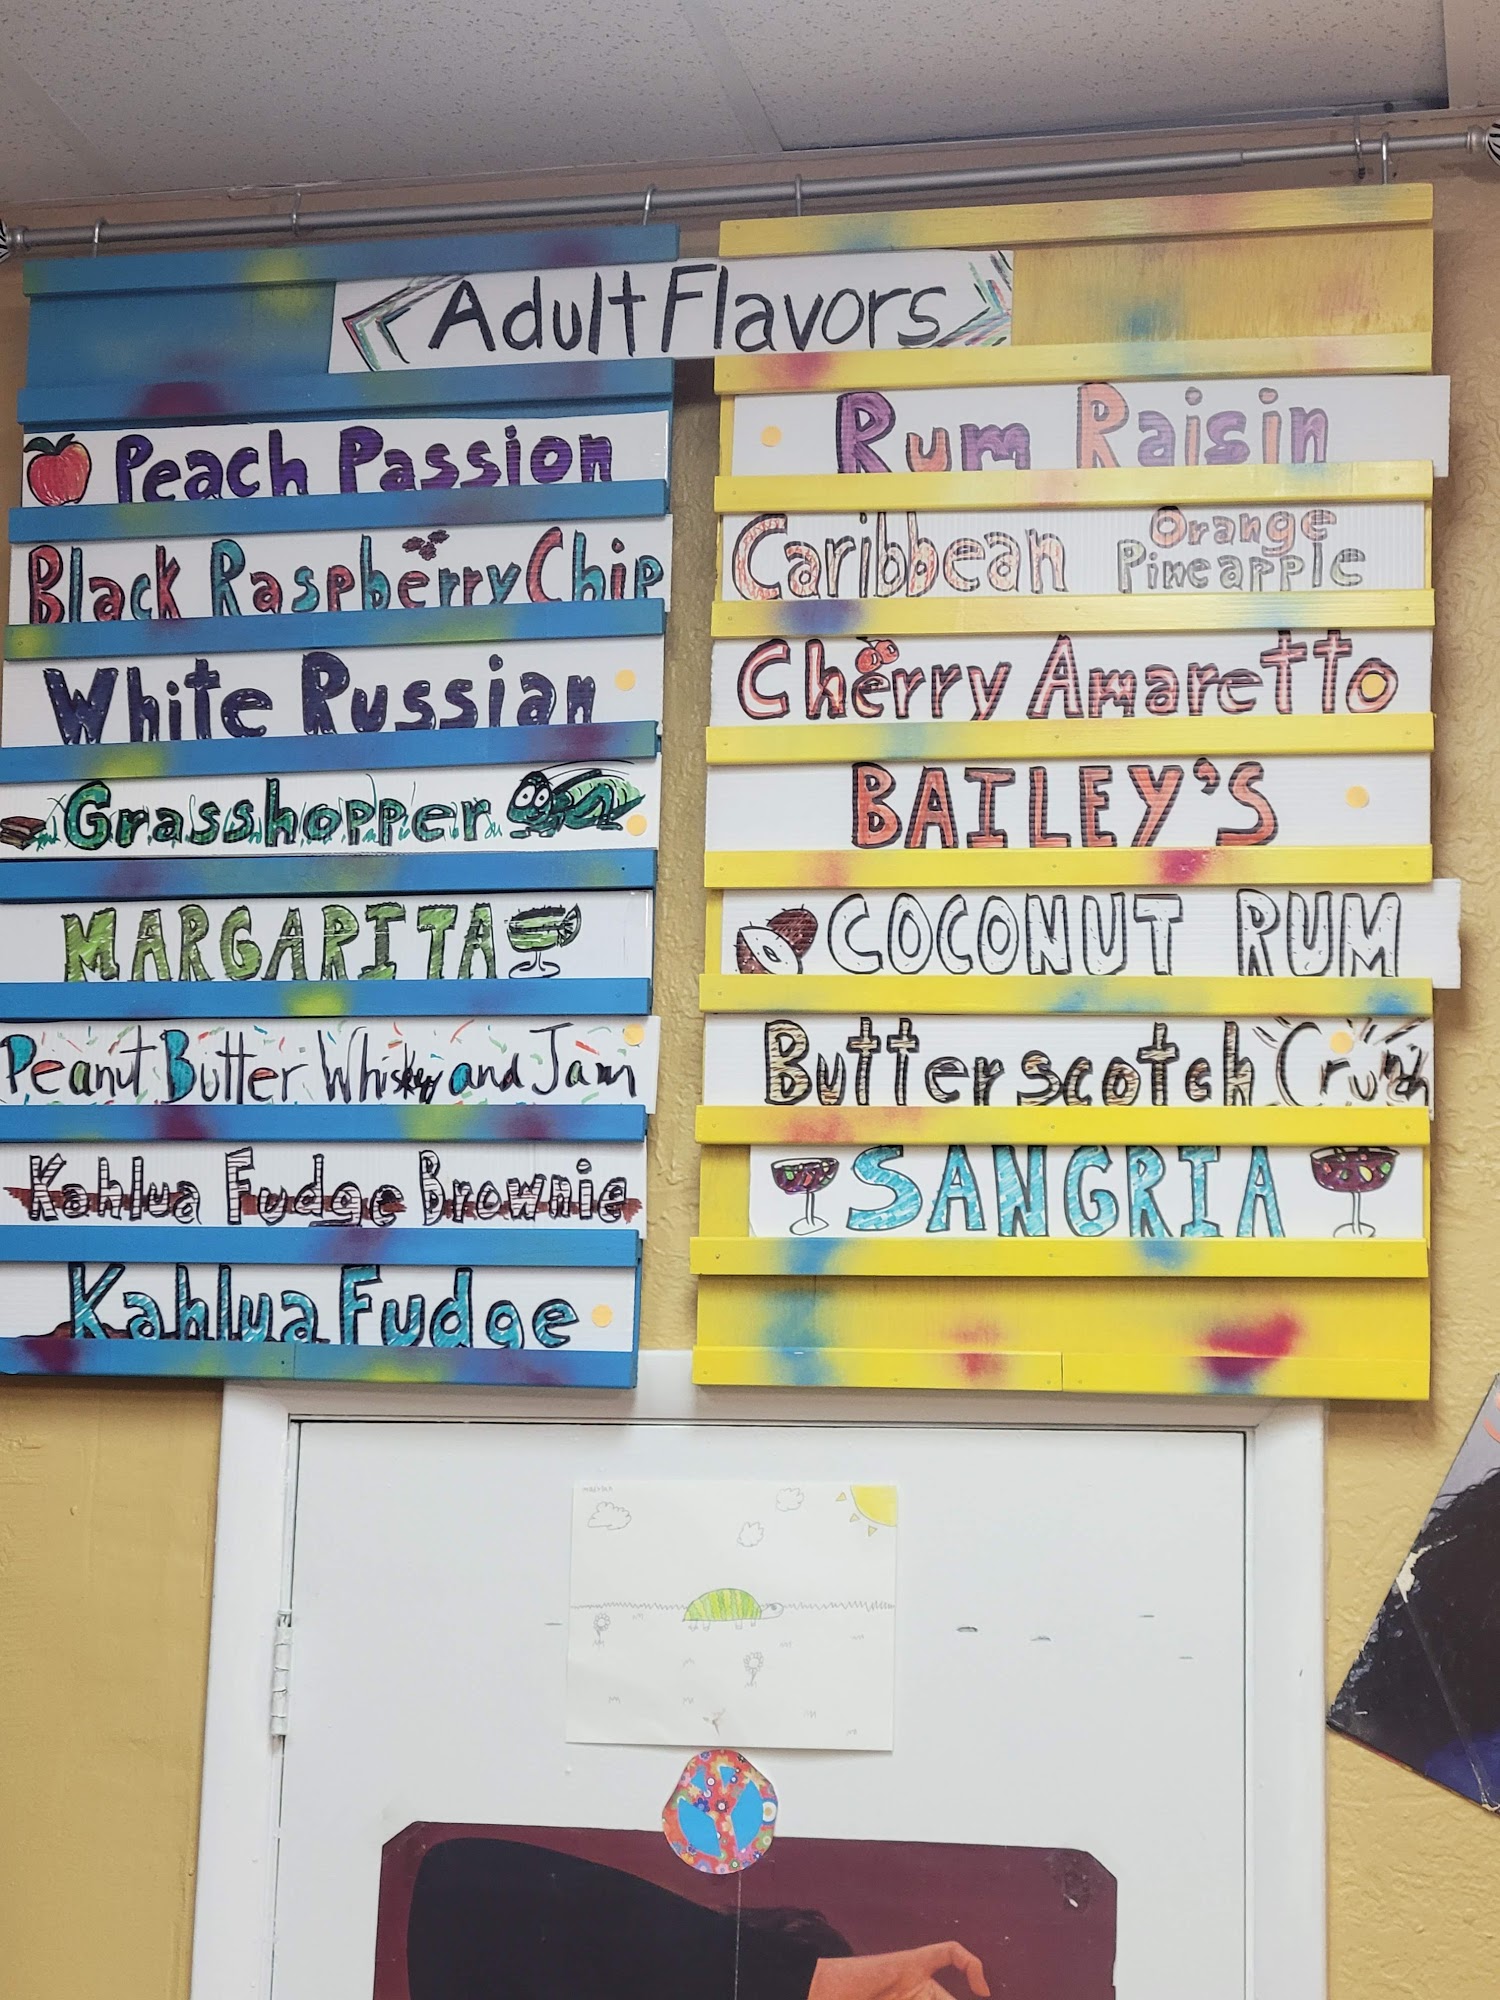 Adult Flavors
Peach Passion
Black Raspberry Chip
White Russian
Grasshopper
MARGARITA
Peanut Butter Whiskey and Jam
Kahlua Fudge Brownie
Kahlua Fudge
Rum Raisin
Caribbean Orange
Pineapple
Cherry Amaretto
BAILEY'S
COCONUT RUM
Butterscotch Crunch
SANGRIA